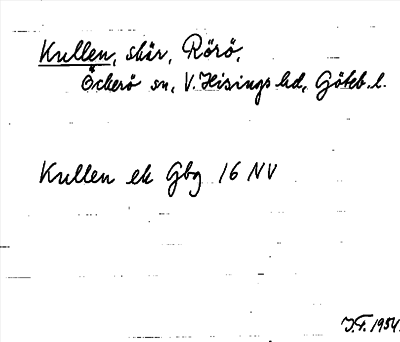 Kullen, skär, Rörö,
Öckerö sn, V. Hisings hd, Göteb. l.
Kullen ek Gbg 16 NV
J.F. 1954.